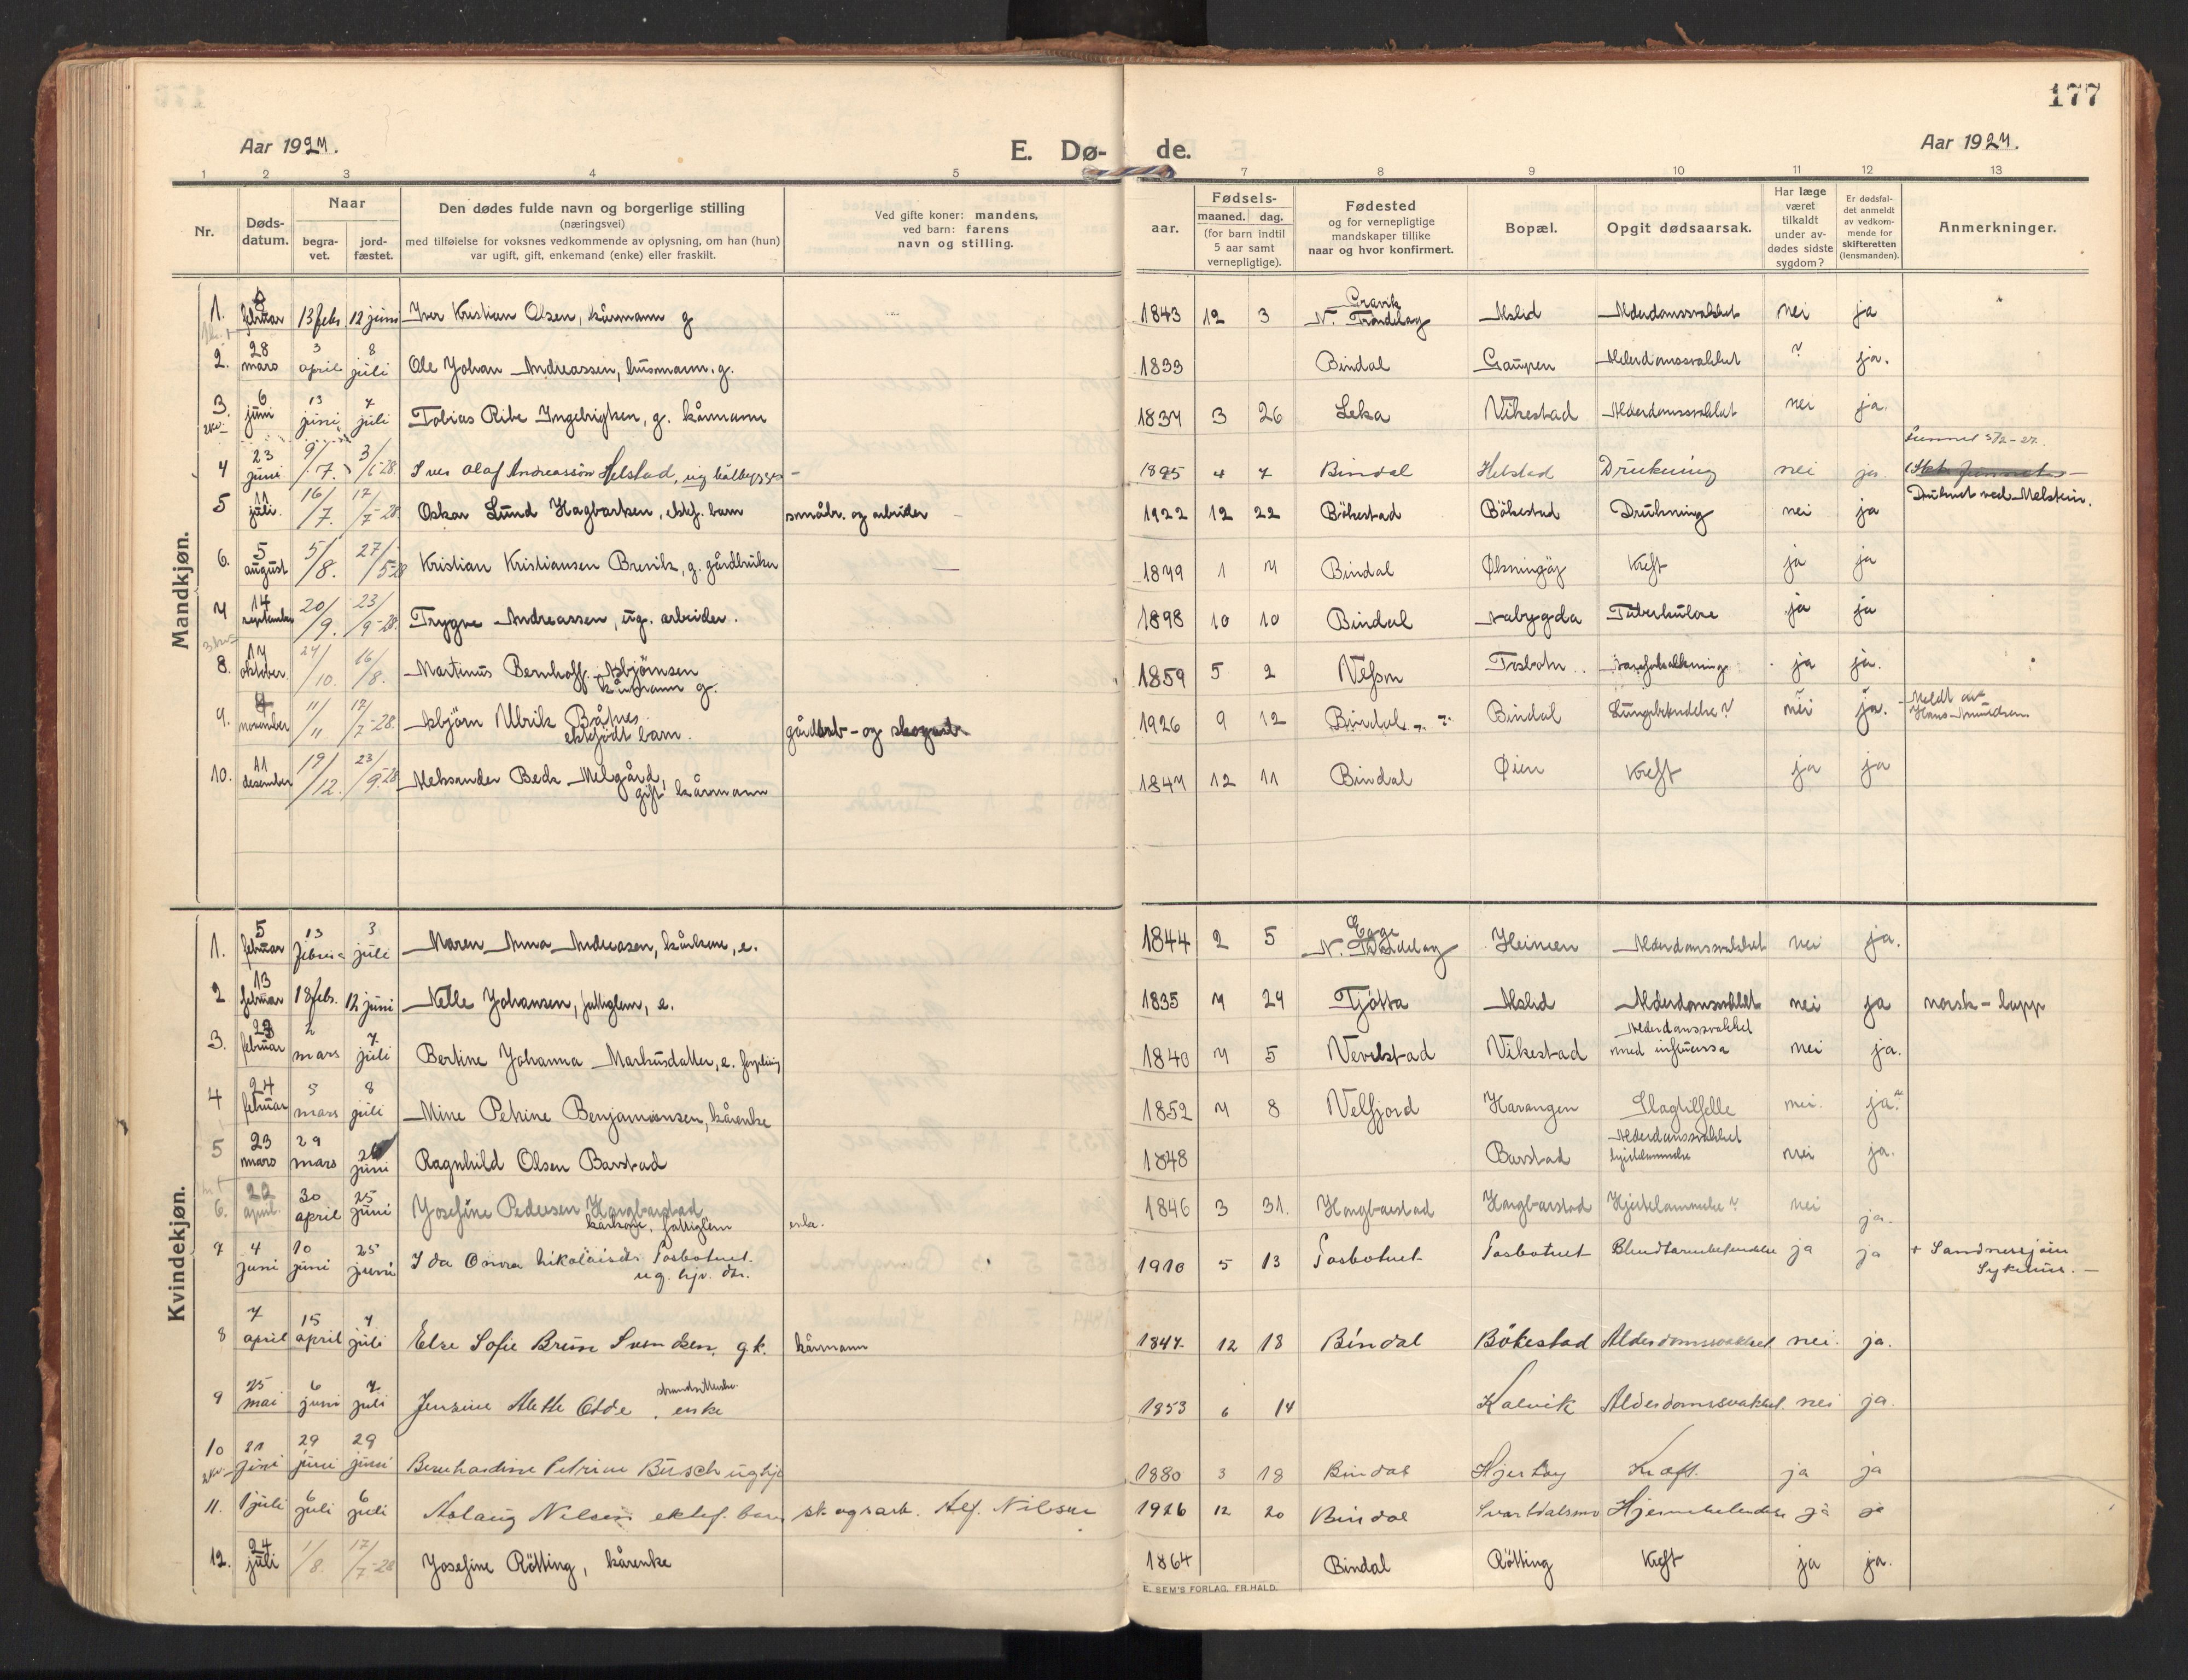 177
Aar 1927.
E. Dø-
de.
Aar 1927.
1 2 3 4 5
7 8 9 10 11 12 13
Nr.
Døds-
datum.
Naar
begra-
vet.
jord-
fæstet.
Den dødes fulde navn og borgerlige stilling
(næringsvei)
med tilføielse for voksnes vedkommende av oplysning, om han (hun)
var ugift, gift, enkemand (enke) eller fraskilt.
Ved gifte koner: mandens,
ved barn: farens
navn og stilling.
Fødsels-
aar.
maaned. dag.
(for barn indtil
5 aar samt
vernepligtige).
Fødested
og for vernepligtige
mandskaper tillike
naar og hvor konfirmert.
Bopæl.
Opgit dødsaarsak.
Har læge
været
tilkaldt
under av-
dødes sidste
sygdom?
Er dødsfal-
det anmeldt
av vedkom-
mende for
skifteretten
(lensmanden).
Anmerkninger.
Mandkjøn.
1. februar 13 febr. 12 juni Iver Kristian Olsen, kårmann g 1843 12 3 Gravik N. Trøndelag Alslid Alderdomssvakhet nei ja
2. 28 mars 3 april 8 juli Ole Johan Andreassen, husmann. g. 1833 Bindal Gaupen Alderdomssvakhet ? ja.
3. 6 juni 13 juni 7 juli Tobias Ribe Ingebrigtsen, g. kårmann 1837 3 26 Leka Vikestad Alderdomssvakhet nei ja.
4 23 juni 9/7. 3/6-28. Iver Olaf Andreassön Helstad, ug. båtbygger 1895 4 7 Bindal Helstad Drukning nei ja
5 11 juli. 16/7. 17/7-28 Oskar Lund Hagbartsen, ektef. barn småbr. og arbeider 1922 12 22 Bökestad Bökestad Drukning nei ja Druknet ved Melstein.
6. 5 august 5/8. 27/5-28 Kristian Kristiansen Brevik, g. gårdbruker 1849 1 7 Bindal Øksningöy Kreft ja ja
7 14 september 20/9. 23/9-28. Trygve Andreassen, ug. arbeider. 1898 10 10 Bindal Aabygda Tuberkulose ja ja
8. 17 oktober 24/10. 16/8. Martinus Bernhoff Asbjørnsen
kårmann g. 1859 5 2 Vefsn Tosbotn ja ja.
9. november 11/11 17/7-28. Asbjörn Ulrik Båtnes
ektefödt barn. gårdarb- og skogsarb. 1926 9 12 Bindal Bindal Lungebetendelse? nei ja. Meldt av
Hans Amundsen
10. 11 desember 19/12. 23/9-28 Aleksander Bech Melgård,
gift kårmann 1847 12 11 Bindal Øien Kreft ja ja
Kvindekjøn.
1. 5 februar 13 februar 3 juli Maren Anna Andreasen, kårkone, e. 1844 2 5 Egge N. Trøndelag Heimen Alderdomssvakhet nei ja.
2 13 februar 18 febr. 12 juni Nelle Johansen, fattiglem, e. 1835 7 29 Tjötta Alslid Alderdomssvakhet nei ja norsk-lapp
3. februar 2 mars 7 juli Bertine Johanna Markusdatter, e. 1840 7 5 Vevelstad Vikestad Alderdomssvakhet
med influensa nei ja.
4 24 februar 5 mars 8 juli Mine Petrine Benjaminsen, kårenke 1852 7 8 Velfjord Harangen Slagtilfelle nei. ja?
5 23 mars 29 mars juni Ragnhild Olsen Barstad 1848 Barstad Alderdomssvakhet
hjertelammelse nei ja.
6. 22 april. 30 april 25 juni Josefine Pedersen Hongbarstad
kårkone, fattiglem enke. 1846 3 31. Hongbarstad Hongbarstad Hjertelammelse? nei ja.
7 4 juni 10 juni 25 juni Ida Onora Nikolaisdtr Tosbotnet.
ug. hjv. dtr. 1910 5 13 Tosbotnet Tosbotnet Blindtarmbetendelse ja ja + Sandnessjöen
Sykehus. -
8 7 april 15 april 7 juli Else Sofie Bruun Svendsen, g. k. kårmann 1847. 12 18 Bindal Bökestad Alderdomssvakhet nei. ja.
9 25 mai 6 juni 7 juli Jensine Alette Odde. enke 1853 6 14 Kalvik Alderdomssvakhet. nei ja.
10 21 juni 29 juni 29 juni Bernhardine Petrine Busch ug hjv 1880 3 18 Bindal Kræft. ja ja
11. 1 juli 6 juli 6 juli Aslaug Nilsen ektef. barn skogsarb. Alf. Nilsen 1926 12 20 Bindal Svartdalsmo Hjernebetendelse ja ja
12. 24 juli 1/8. 17/7-28 Josefine Rötting, kårenke 1864 Bindal Rötting Kreft ja ja.
E. SEM'S FORLAG, FR.HALD.